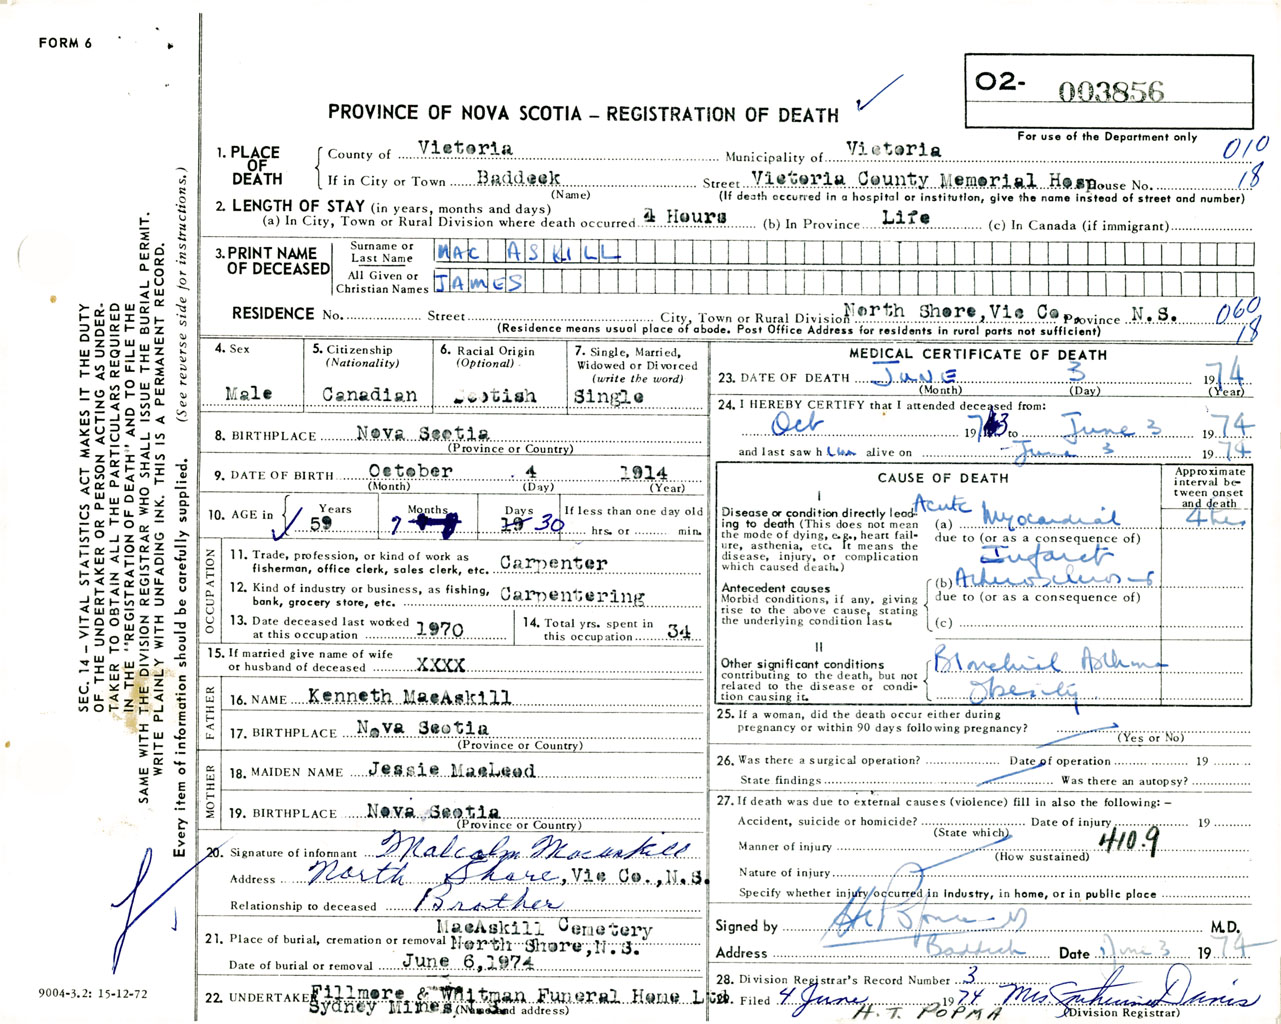 FORM 6
O2- 003856
For use of the Department only
PROVINCE OF NOVA SCOTIA – REGISTRATION OF DEATH
010
18
1. PLACE OF DEATH
County of Victoria Municipality of Victoria
If in City or Town Baddeck Street Victoria County Memorial Hosp House No.
(Name) (If death occurred in a hospital or institution, give the name instead of street and number)
2. LENGTH OF STAY (in years, months and days)
(a) In City, Town or Rural Division where death occurred 4 Hours (b) In Province Life (c) In Canada (if immigrant)
3. PRINT NAME OF DECEASED
Surname or Last Name MAC ASKILL
All Given or Christian Names JAMES
RESIDENCE No. Street City, Town or Rural Division North Shore, Vic Co Province N.S.
060
18
(Residence means usual place of abode. Post Office Address for residents in rural parts not sufficient)
4. Sex
Male
5. Citizenship
(Nationality)
Canadian
6. Racial Origin
(Optional)
Scotish
7. Single, Married,
Widowed or Divorced
(write the word)
Single
8. BIRTHPLACE Nova Scotia
(Province or Country)
9. DATE OF BIRTH October 4 1914
(Month) (Day) (Year)
10. AGE in Years Months Days If less than one day old
59 7 30 hrs. or min.
OCCUPATION
11. Trade, profession, or kind of work as
fisherman, office clerk, sales clerk, etc. Carpenter
12. Kind of industry or business, as fishing,
bank, grocery store, etc. Carpentering
13. Date deceased last worked
at this occupation 1970
14. Total yrs. spent in
this occupation 34
15. If married give name of wife
or husband of deceased XXXX
FATHER
16. NAME Kenneth MacAskill
17. BIRTHPLACE Nova Scotia
(Province or Country)
MOTHER
18. MAIDEN NAME Jessie MacLeod
19. BIRTHPLACE Nova Scotia
(Province or Country)
20. Signature of informant Malcolm Macaskill
Address North Shore, Vic Co., N.S.
Relationship to deceased Brother
21. Place of burial, cremation or removal MacAskill Cemetery
North Shore, N.S.
Date of burial or removal June 6, 1974
22. UNDERTAKER Fillmore & Whitman Funeral Home Ltd
Sydney Mines N.S.
(Name and address)
MEDICAL CERTIFICATE OF DEATH
23. DATE OF DEATH JUNE 3 1974
(Month) (Day) (Year)
24. I HEREBY CERTIFY that I attended deceased from:
Oct 1973 to June 3 1974
and last saw him alive on June 3 1974
CAUSE OF DEATH
Approximate interval between onset and death
I
Disease or condition directly leading to death (This does not mean the mode of dying, e.g., heart failure, asthenia, etc. It means the disease, injury, or complication which caused death.)
(a) Acute Myocardial 4 hrs
due to (or as a consequence of)
Infarct
Antecedent causes
Morbid conditions, if any, giving rise to the above cause, stating the underlying condition last.
(b) Atherosclerosis
due to (or as a consequence of)
(c)
II
Other significant conditions
contributing to the death, but not related to the disease or condition causing it.
Bronchial Asthma
Obesity
25. If a woman, did the death occur either during
pregnancy or within 90 days following pregnancy?
(Yes or No)
26. Was there a surgical operation? Date of operation 19
State findings Was there an autopsy?
27. If death was due to external causes (violence) fill in also the following: –
Accident, suicide or homicide? Date of injury 19
(State which)
410.9
Manner of injury
(How sustained)
Nature of injury
Specify whether injury occurred in Industry, in home, or in public place
Signed by M.D.
Address Baddeck Date June 3 1974
28. Division Registrar's Record Number 3
29. Filed 4 June 1974 Mrs Catherine Davis
(Division Registrar)
H. T. POPMA
SEC. 14 – VITAL STATISTICS ACT MAKES IT THE DUTY
OF THE UNDERTAKER OR PERSON ACTING AS UNDER-
TAKER TO OBTAIN ALL THE PARTICULARS REQUIRED
IN THE "REGISTRATION OF DEATH" AND TO FILE THE
SAME WITH THE DIVISION REGISTRAR WHO SHALL ISSUE THE BURIAL PERMIT.
WRITE PLAINLY WITH UNFADING INK. THIS IS A PERMANENT RECORD.
Every item of information should be carefully supplied. (See reverse side for instructions.)
9004-3.2: 15-12-72